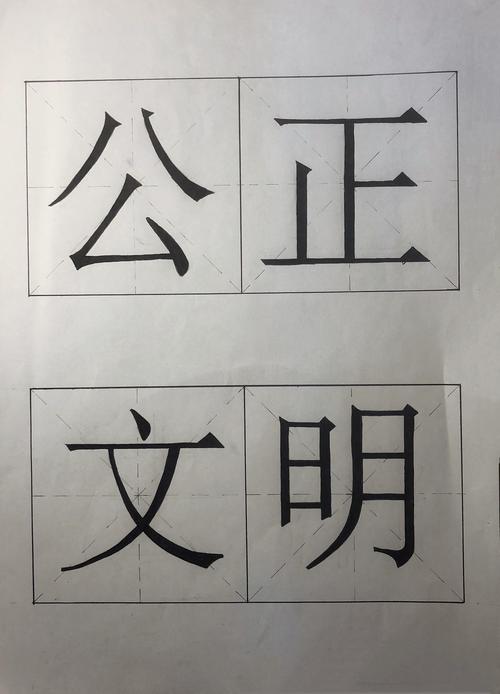 公正
文明